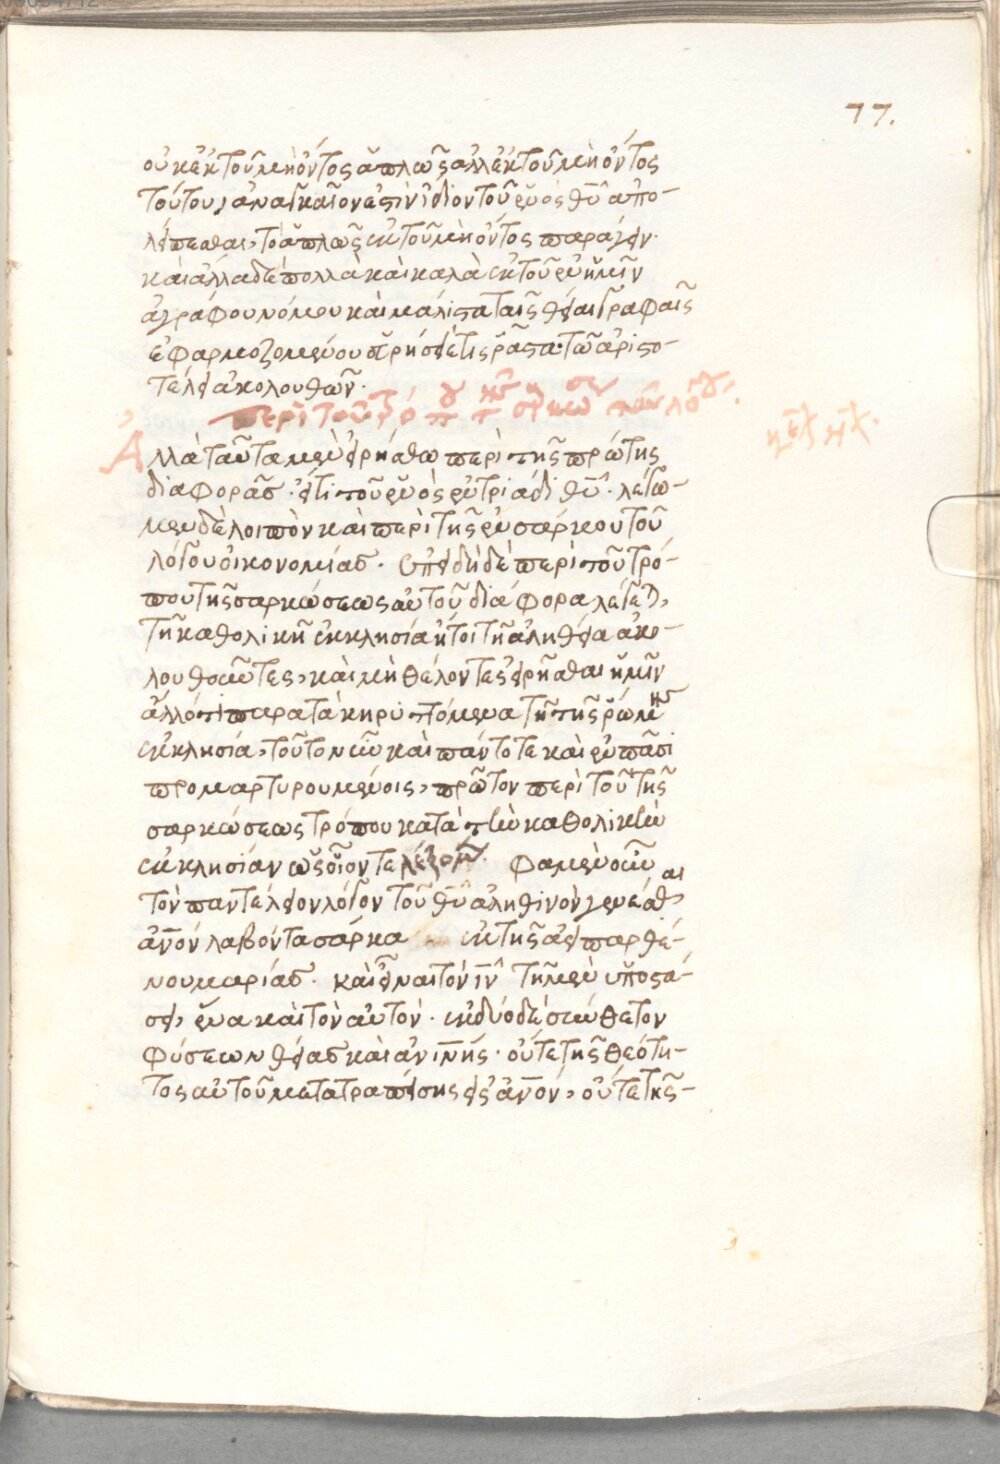 77.
οὐκ ἐκ τοῦ μὴ ὄντος ἁπλῶς ἀλλ' ἐκ τοῦ μὴ ὄντος
τούτου, ἀναγκαῖον ἐστὶν ἴδιον τοῦ ἑνὸς θῦ ἀπο-
λείπεσθαι, τὸ ἁπλῶς ἐκ τοῦ μὴ ὄντος παράγειν.
καὶ ἄλλα δὲ πολλὰ καὶ καλὰ ἐκ τοῦ ἐν ἡμῖν
ἀγράφου νόμου καὶ μάλιστα ταῖς θείαις γραφαῖς
ἐφαρμοζομένου εὑρήσει τὶς ῥᾷστα τῶ ἀριστο-
τέλει ἀκολουθῶν.
περὶ τοῦ
Ἀλλὰ ταῦτα μὲν εἰρήσθω περὶ τῆς πρώτης
διαφορᾶς. ἔτι τοῦ ἑνὸς ἐν τριάδι θῦ. λέγω-
μεν δὲ λοιπὸν καὶ περὶ τῆς ἐνσάρκου τοῦ
λόγου οἰκονομίας. ἐπειδὴ δὲ περὶ τοῦ τρό-
που τῆς σαρκώσεως αὐτοῦ διάφορα λέγετ,
τῆ καθολικῆ ἐκκλησία ἤτοι τῆ ἀληθεία ἀκο-
λουθοῦντες, καὶ μὴ θέλοντες εἰρῆσθαι ἡμῖν
ἄλλό τι παρὰ τὰ κηρυττόμενα τῆ τῆς ῥώμης
ἐκκλησία, τοῦτο νῦν καὶ πάντοτε καὶ ἐν πᾶσι
προμαρτυρουμένοις, πρῶτον περὶ τοῦ τῆς
σαρκώσεως τρόπου κατὰ τὴν καθολικὴν
ἐκκλησίαν ὡς οἷόν τε λέξομεν. φαμὲν οὖν
τὸν παντέλειον λόγον τοῦ θῦ ἀληθινὸν γενέσθαι
ἄνον λαβόντα σάρκα ἐκ τῆς ἀεὶ παρθέ-
νου μαρίας. καὶ εἶναι τὸν ιν τῆ μὲν ὑποστά-
σει, ἕνα καὶ τὸν αὐτὸν. ἐκ δύο δὲ σύνθετον
φύσεων θείας καὶ ἀνίνης. οὔτε τῆς θεότη-
τος αὐτοῦ μετατραπείσης εἰς ἄνον, οὔτε τῆς-